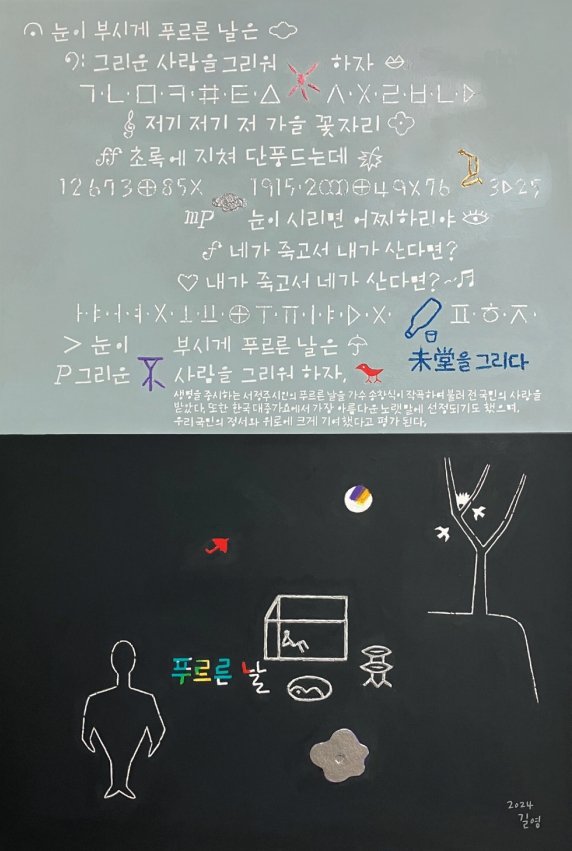 눈이 부시게 푸르른 날은
그리운 사람을 그리워 하자
ㄱ·ㄴ·ㅁ·ㅋ·ㅍ·ㅌ·△ ㅅ·X·ㄹ·ㅂ·ㄴ·▷
저기 저기 저 가을 꽃자리
ff 초록에 지쳐 단풍드는데
12673⊕85X 1915·2000⊕49X76 3▷25
mP 눈이 시리면 어찌하리야
f 네가 죽고서 내가 산다면?
내가 죽고서 네가 산다면?~♬
ㅏ·ㅑ·ㅓ·ㅕ·X·ㅗ·ㅛ·⊕·ㅜ·ㅠ·ㅣ·ㅑ·▷·X· ㅍ·ㅎ·ㅈ·
> 눈이 부시게 푸르른 날은
P 그리운 사람을 그리워 하자,
未堂을 그리다
생명을 중시하는 서정주시인의 푸르른 날을 가수 송창식이 작곡하여 불러 전 국민의 사랑을
받았다. 또한 한국 대중가요에서 가장 아름다운 노랫말에 선정되기도 했으며,
우리 국민의 정서와 위로에 크게 기여했다고 평가 된다.
푸르른 날
2024
길영